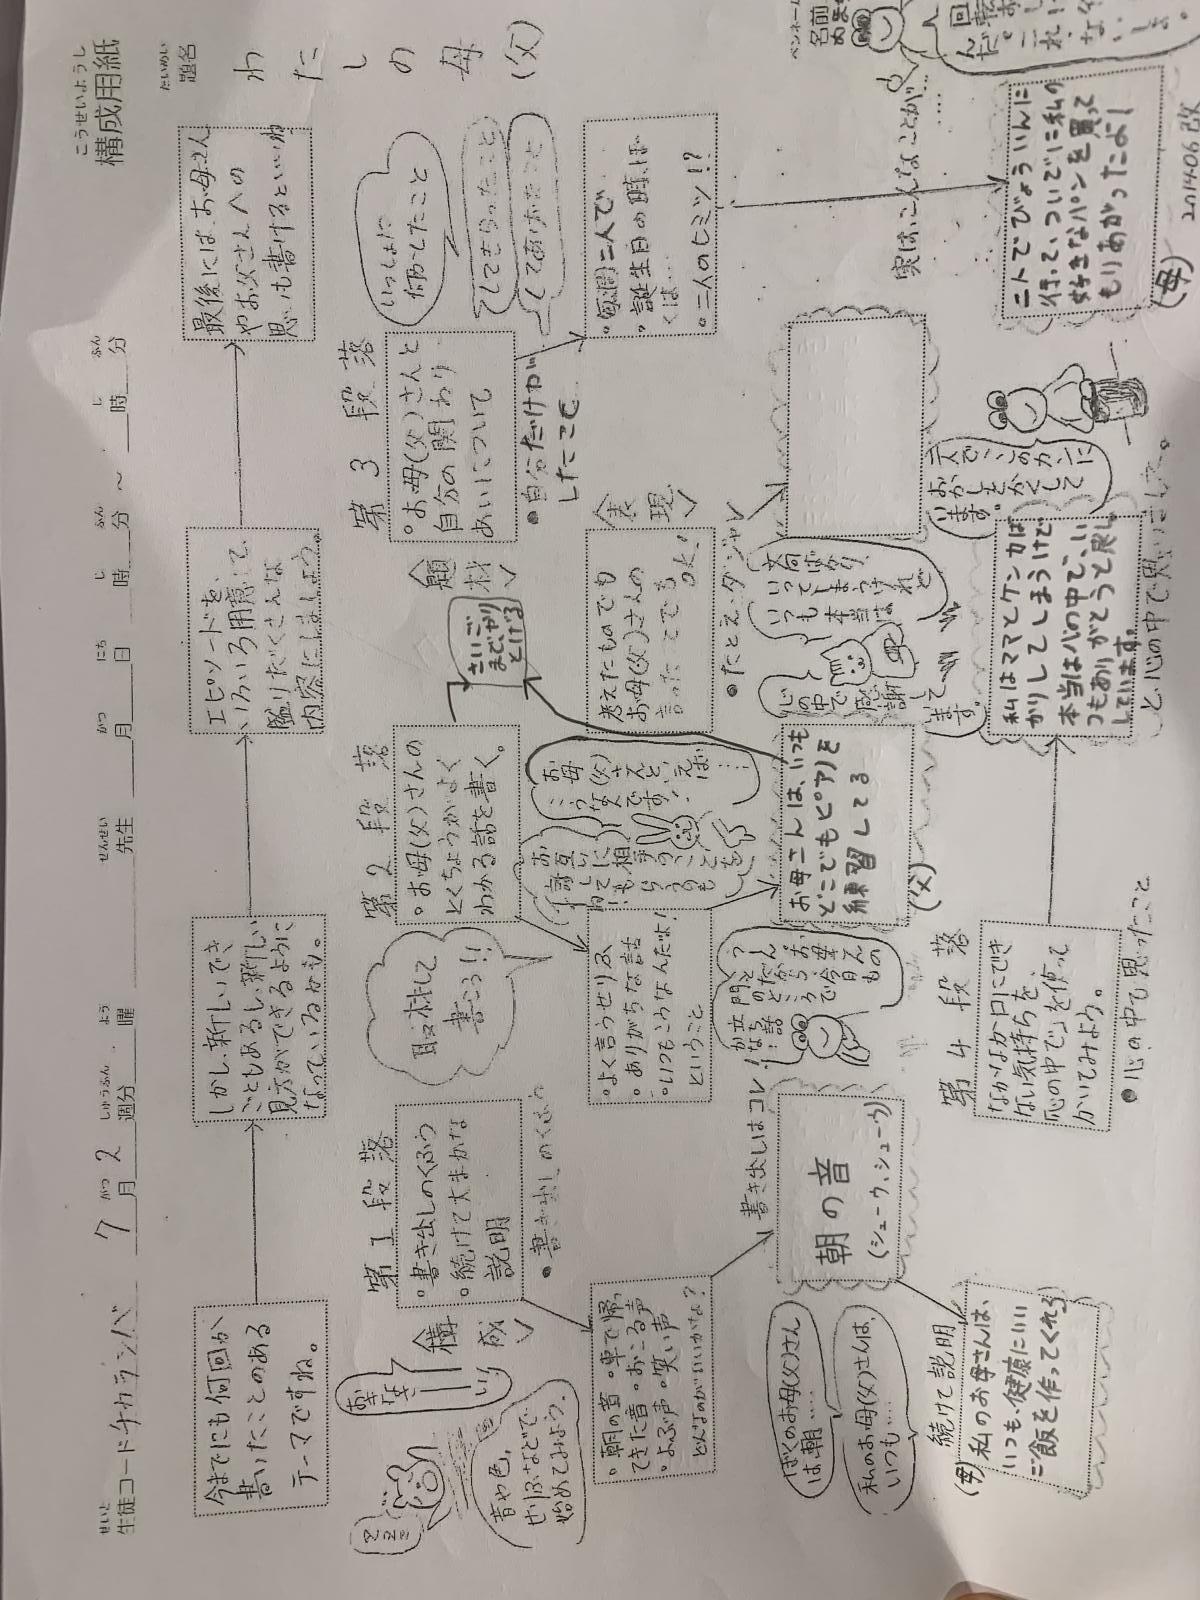 こうせいようし
構成用紙
せいと
生徒コード チカラシバ 7月 2週分・曜 先生 月 日 時 分 ～ 時 分
がつ しゅうふん よう せんせい がつ にち じ ふん じ ふん
だいめい
題名
わたしの母(父)
ペンネーム
名前
今までにも何回か
書いたことのある
テーマですね。
しかし、新しいでき
ごともあるし、新しい
見方ができるように
なっているかも。
エピソードを、
いろいろ用意して、
盛りだくさんな
内容にしましょう。
最後には、お母さん
やお父さんへの
思いも書けるといいね
<構成>
第1段落
・書き出しのくふう
・続けて大まかな
説明
・書き出しのくふう
音や色、
せりふなどで
始めてみよう。
・朝の音・車で帰っ
てきた音・おこる声
・よぶ声・笑い声
どんなのがいいかな?
書き出しはコレ!
朝の音
(シューウ、シューウ)
ぼくのお母(父)さん
は朝……
私のお母(父)さんは、
いつも……
続けて説明
(母)
私のお母さんは、
いつも、健康にいい
ご飯を作ってくれる
取材して
書こう!!
第2段落
・お母(父)さんの
とくちょうがよく
わかる話を書く。
・よく言うせりふ
・ありがちな話
・いつもこうなんだよ!
ということ
お母
(父)
さんと、いえば
こうなんです!
お互い
に相
手のことを
お母さんは、いつも
どこでもピアノを
練習してる
(父)
さいご
までやり
とげる
<題材>
第3段落
・お母(父)さんと
自分の関わり
あいについて
・自分だけがし
たこと
いっしょに
何かしたこと
してもらったこと
してあげたこと
・毎週二人で
・誕生日の時、ぼ
くは…
・二人のヒミツ!?
実は、こんなことが……
二人でびょういんに
行って、ついでに私の
好きなパンを買って
もりあがったよ!
(母)
<表現>
考えたものでも
お母(父)さんの
言ったことでも
OK!
・たとえ・ダジャレ
二人で、このカンに
おかしをかくして
います。
第4段落
なかなか口にでき
ない気持ちを、
「心の中で」を使って
かいてみよう。
・心の中で思ったこと
文句ばかり
いってしまうけれど
いつも本当は
心の中で
感謝して
ます。
私はママとケンカば
かりしてしまうけど
本当は心の中で、い
つもありがとうと感謝し
しています。
と、心の中で思いました。
201406改